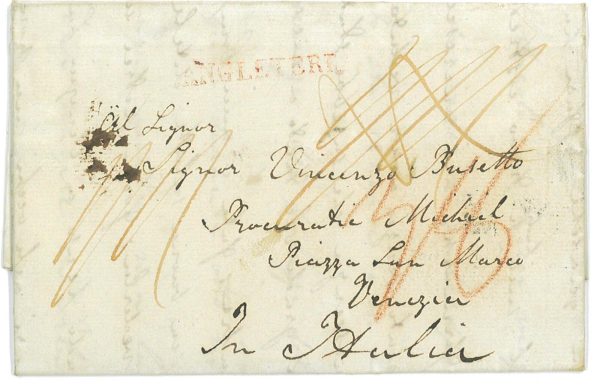 ANGLETERRE
Al Signor
Signor Vincenzo Busetto
Procuratie Michael
Piazza San Marco
Venezia
In Italia